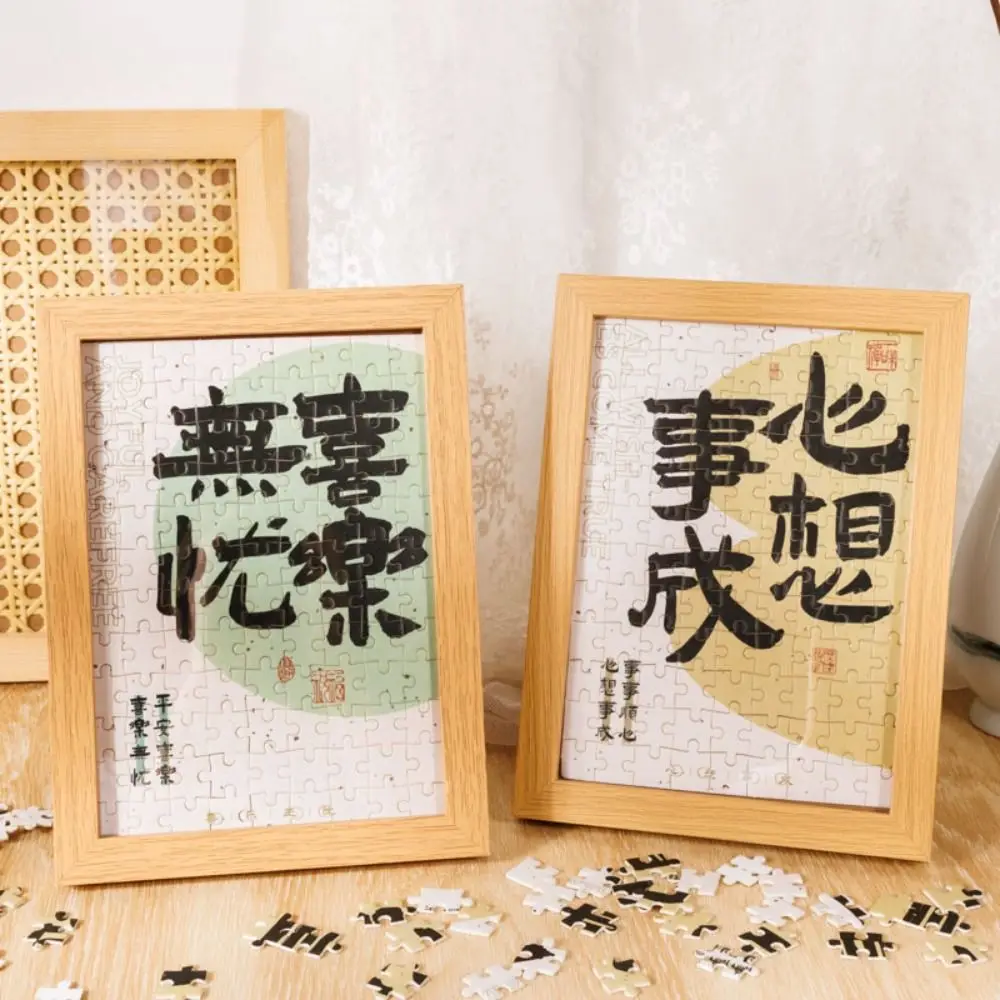 喜樂
無忧
JOYFUL
AND CAREFREE
平安喜樂
喜樂无忧
心想
事成
ES COME TRUE
事事順心
心想事成